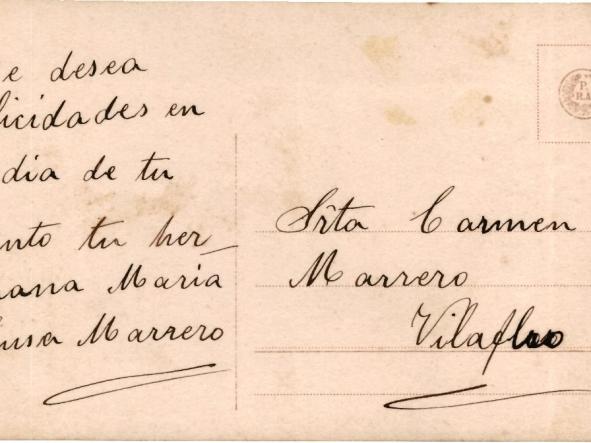 e desea
licidades en
dia de tu
nto tu her-
ana Maria
uisa Marrero
Srta Carmen
Marrero
Vilaflor
P.
RA